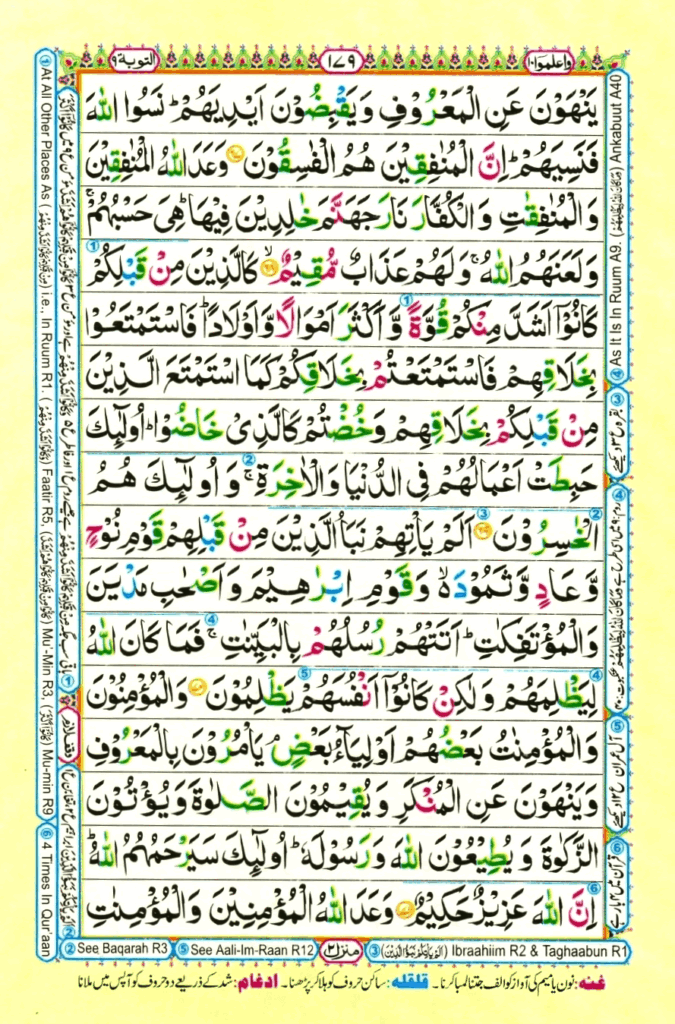 واعلموا ١٠
١٧٩
التوبة ٩
يَنْهَوْنَ عَنِ الْمَعْرُوْفِ وَيَقْبِضُوْنَ اَيْدِيَهُمْ ؕ نَسُوا اللّٰهَ
فَنَسِيَهُمْ ؕ اِنَّ الْمُنٰفِقِيْنَ هُمُ الْفٰسِقُوْنَ ﴿۶۷﴾ وَعَدَ اللّٰهُ الْمُنٰفِقِيْنَ
وَالْمُنٰفِقٰتِ وَالْكُفَّارَ نَارَ جَهَنَّمَ خٰلِدِيْنَ فِيْهَا ؕ هِىَ حَسْبُهُمْ ۚ
وَلَعَنَهُمُ اللّٰهُ ۚ وَلَهُمْ عَذَابٌ مُّقِيْمٌ ﴿۶۸﴾ ۙ كَالَّذِيْنَ مِنْ قَبْلِكُمْ ①
كَانُوْۤا اَشَدَّ مِنْكُمْ قُوَّةً ① وَّاَكْثَرَ اَمْوَالًا وَّاَوْلَادًا ؕ فَاسْتَمْتَعُوْا
بِخَلَاقِهِمْ فَاسْتَمْتَعْتُمْ بِخَلَاقِكُمْ كَمَا اسْتَمْتَعَ الَّذِيْنَ
مِنْ قَبْلِكُمْ بِخَلَاقِهِمْ وَخُضْتُمْ كَالَّذِىْ خَاضُوْا ؕ اُولٰٓئِكَ
حَبِطَتْ اَعْمَالُهُمْ فِى الدُّنْيَا وَالْاٰخِرَةِ ② ۚ وَاُولٰٓئِكَ هُمُ
الْخٰسِرُوْنَ ﴿۶۹﴾ ③ اَلَمْ يَاْتِهِمْ نَبَاُ الَّذِيْنَ مِنْ قَبْلِهِمْ قَوْمِ نُوْحٍ ②
وَّعَادٍ وَّثَمُوْدَ ۙ وَقَوْمِ اِبْرٰهِيْمَ وَاَصْحٰبِ مَدْيَنَ
وَالْمُؤْتَفِكٰتِ ؕ اَتَتْهُمْ رُسُلُهُمْ بِالْبَيِّنٰتِ ④ ۚ فَمَا كَانَ اللّٰهُ
لِيَظْلِمَهُمْ وَلٰكِنْ كَانُوْۤا اَنْفُسَهُمْ ⑤ يَظْلِمُوْنَ ﴿۷۰﴾ وَالْمُؤْمِنُوْنَ ④
وَالْمُؤْمِنٰتُ بَعْضُهُمْ اَوْلِيَآءُ بَعْضٍ ۘ يَاْمُرُوْنَ بِالْمَعْرُوْفِ
وَيَنْهَوْنَ عَنِ الْمُنْكَرِ وَيُقِيْمُوْنَ الصَّلٰوةَ وَيُؤْتُوْنَ
الزَّكٰوةَ وَيُطِيْعُوْنَ اللّٰهَ وَرَسُوْلَهٗ ؕ اُولٰٓئِكَ سَيَرْحَمُهُمُ اللّٰهُ ؕ
اِنَّ اللّٰهَ عَزِيْزٌ حَكِيْمٌ ﴿۷۱﴾ وَعَدَ اللّٰهُ الْمُؤْمِنِيْنَ وَالْمُؤْمِنٰتِ ⑥
① At All Other Places As i.e., In Ruum R1. Faatir R5, Mu'-Min R3, Mu-min R9
⑥ 4 Times In Qur'aan
وقف لازم
④ As It Is In Ruum A9. Ankabuut A40
② See Baqarah R3
⑤ See Aali-Im-Raan R12
منزل ٢
③ Ibraahiim R2 & Taghaabun R1
غنه: نون یا میم کی آواز کو الف جتنا لمبا کرنا۔ قلقله: ساکن حروف کو ہلا کر پڑھنا۔ ادغام: شد کے ذریعے دو حروف کو آپس میں ملانا